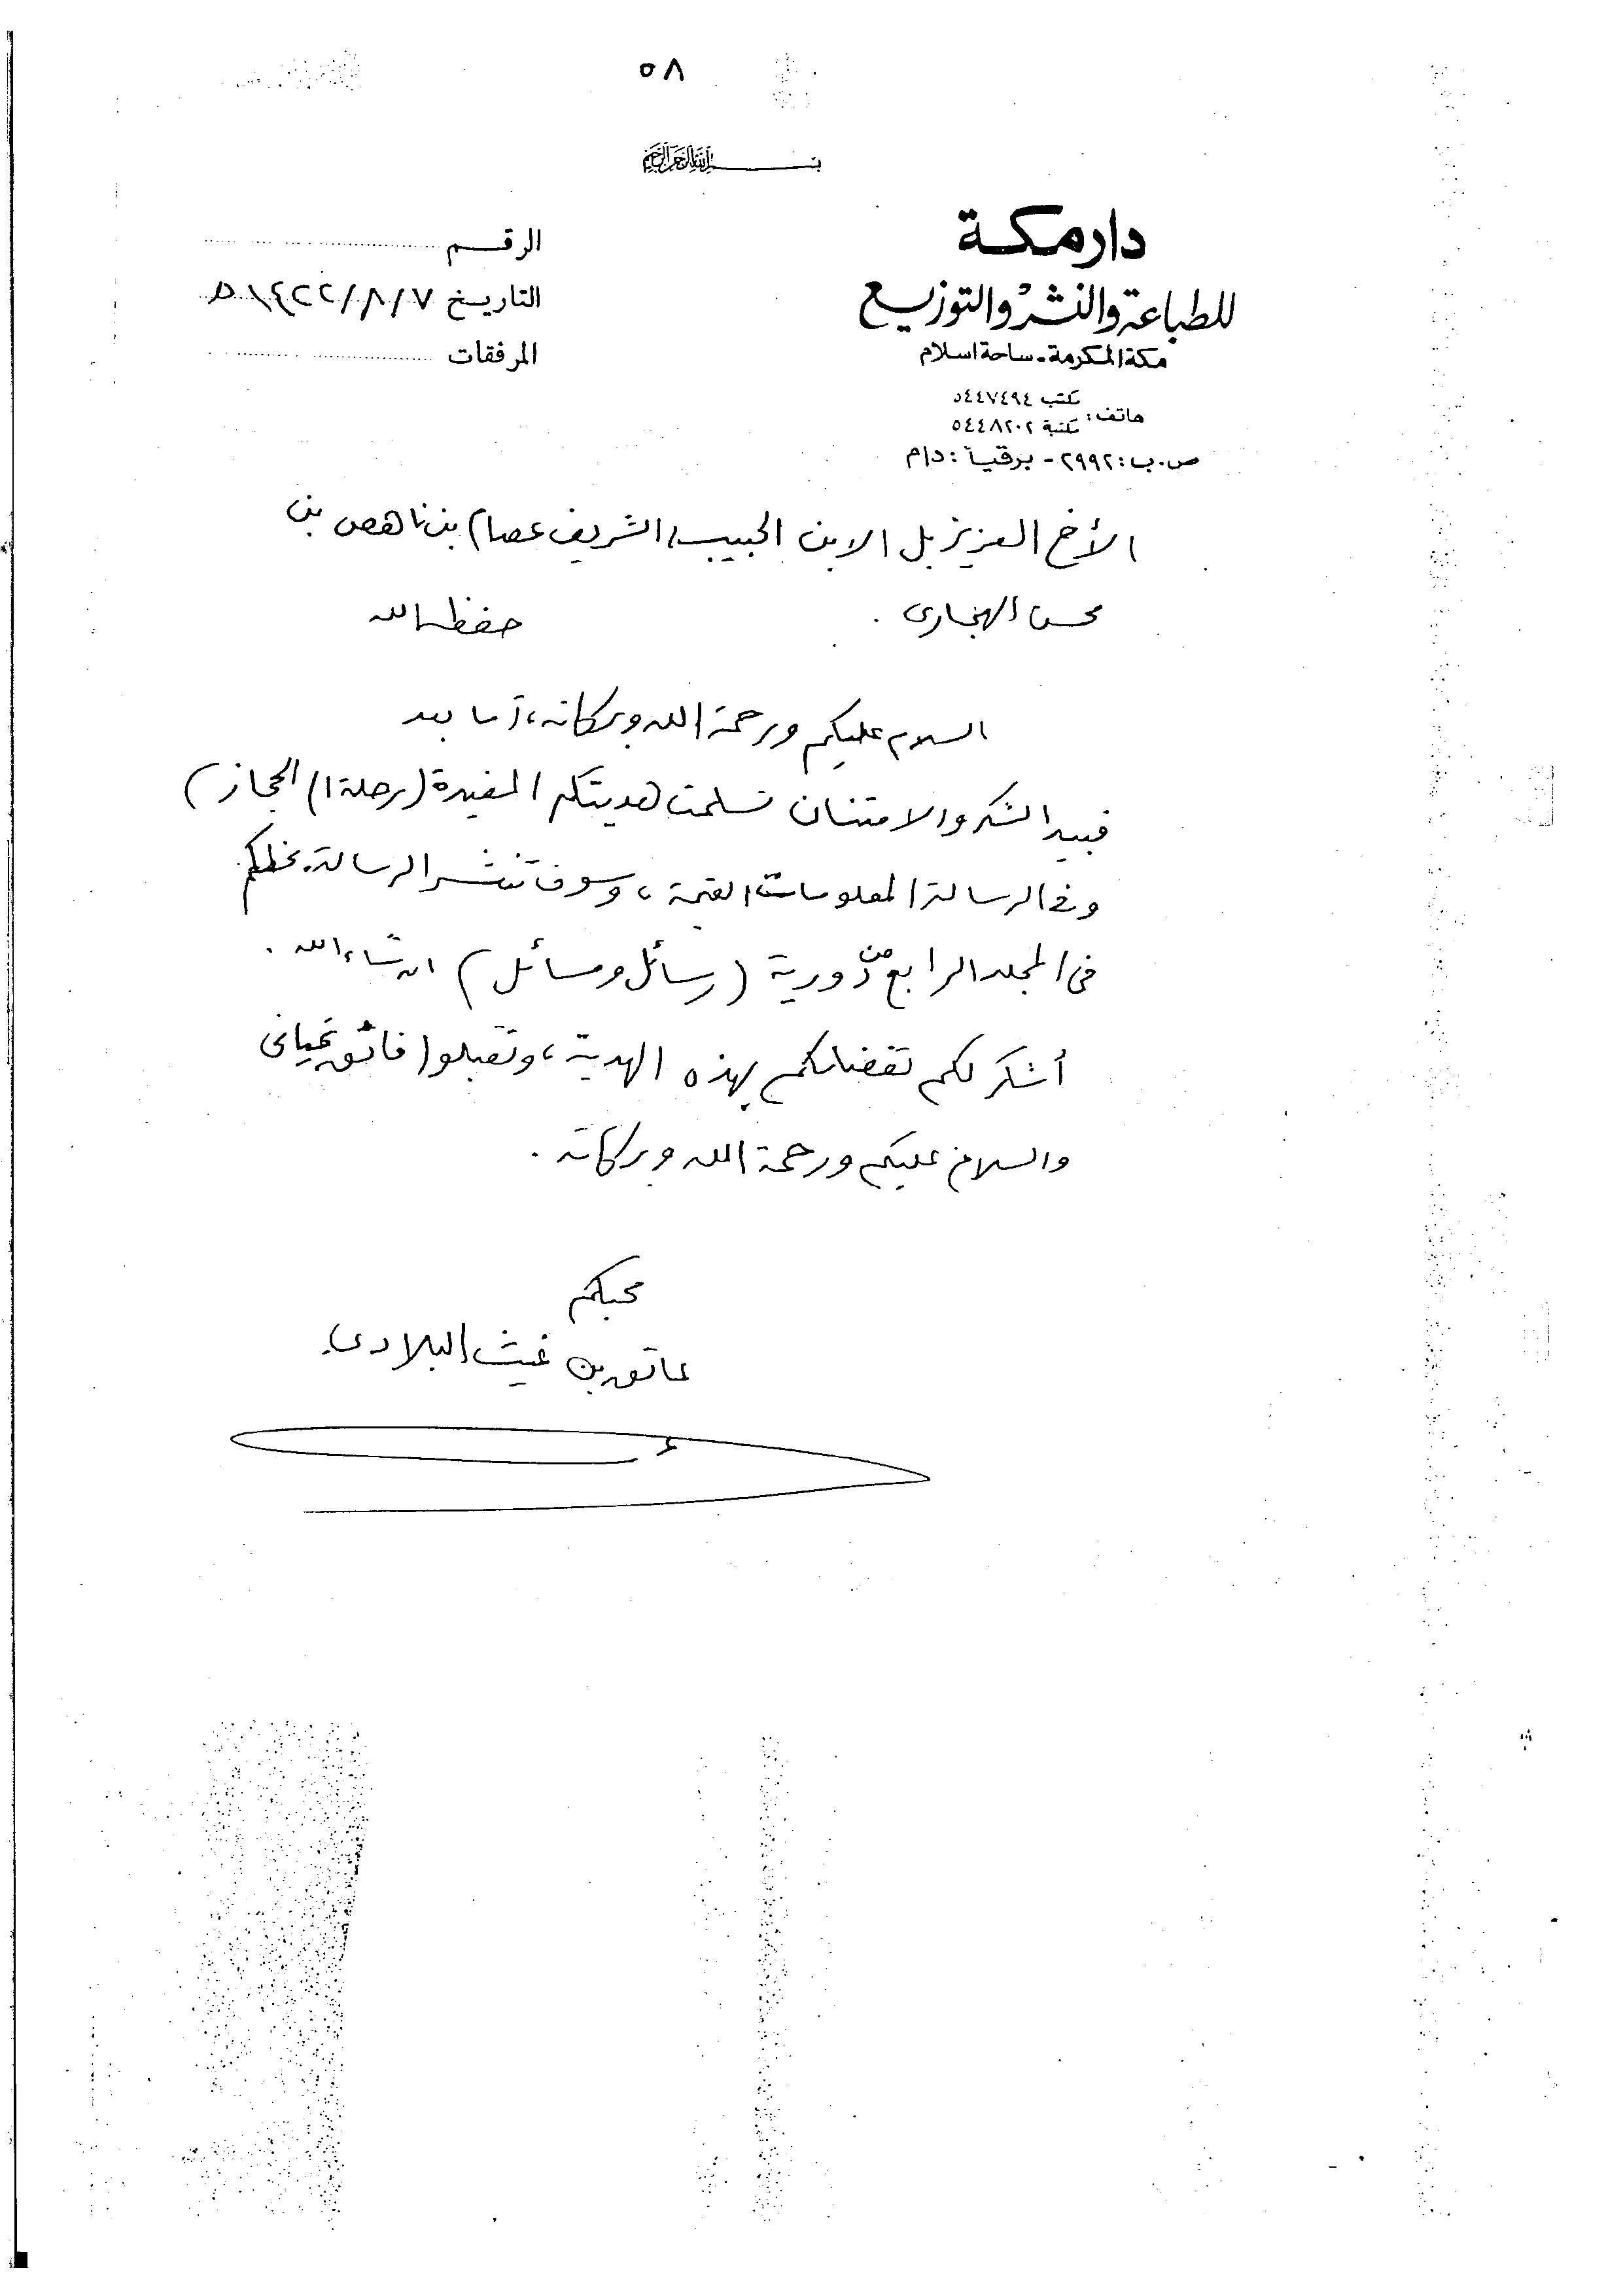 ٥٨
بسم الله الرحمن الرحيم
دار مكة
للطباعة والنشر والتوزيع
مكة المكرمة - ساحة اسلام
هاتف: مكتب ٥٤٤٧٤٩٤
مكتبة ٥٤٤٨٢٠٢
ص.ب: ٢٩٩٢ - برقياً: دام
الرقم
التاريخ ٧/٨/١٤٢٢هـ
المرفقات
الأخ العزيز بل الابن الحبيب، الشريف عصام بن ناهض بن
محسن الهجاري . حفظه الله
السلام عليكم ورحمة الله وبركاته، أما بعد
فبيد الشكر والامتنان تسلمت هديتكم المفيدة (رحلة الحجاز)
وفي الرسالة المعلومات القيمة، وسوف تنشر الرسالة بخطكم
في المجلد الرابع من دورية (رسائل ومسائل) ان شاء الله .
أشكر لكم تفضلكم بهذه الهدية، وتقبلوا فائق تحياتي
والسلام عليكم ورحمة الله وبركاته .
محبكم
عاتق بن غيث البلادي